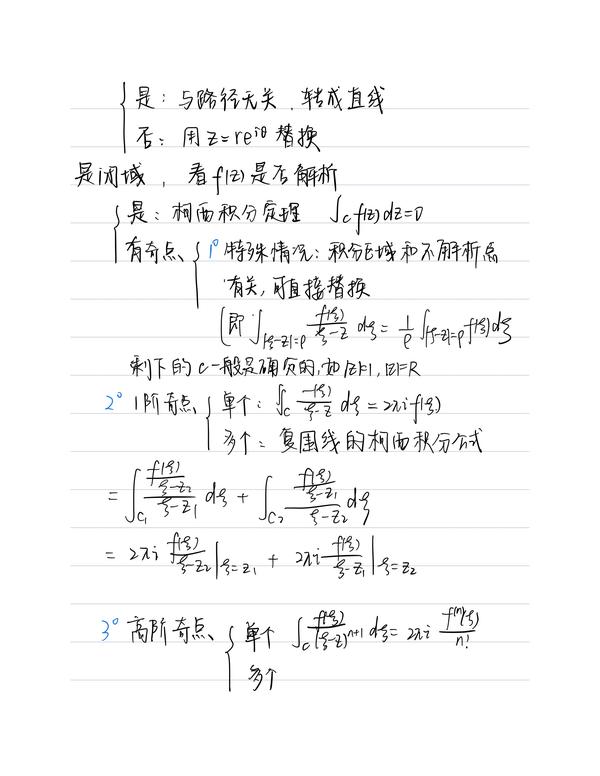 是：与路径无关，转成直线
否：用 z=re^{iθ} 替换
是闭域，看f(z)是否解析
是：柯西积分定理 ∫_C f(z)dz=0
有奇点、1° 特殊情况：积分区域和不解析点
有关，可直接替换
(即 ∫_{|ξ-z|=ρ} \frac{f(ξ)}{ξ-z} dξ = \frac{1}{ρ} ∫_{|ξ-z|=ρ} f(ξ)dξ
剩下的 c 一般是确定的，如|z|=1, |z|=R
2° 1阶奇点、单个：∫_C \frac{f(ξ)}{ξ-z} dξ = 2πi f(ξ)
多个：复围线的柯西积分公式
= ∫_{C_1} \frac{\frac{f(ξ)}{ξ-z_2}}{ξ-z_1} dξ + ∫_{C_2} \frac{\frac{f(ξ)}{ξ-z_1}}{ξ-z_2} dξ
= 2πi \frac{f(ξ)}{ξ-z_2}|_{ξ=z_1} + 2πi \frac{f(ξ)}{ξ-z_1}|_{ξ=z_2}
3° 高阶奇点、单个 ∫_C \frac{f(ξ)}{(ξ-z)^{n+1}} dξ = 2πi \frac{f^{(n)}(ξ)}{n!}
多个